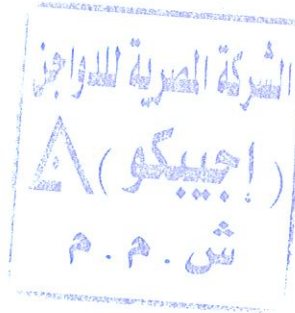 الشركة المصرية للدواجن
( إجيبكو )
ش . م . م